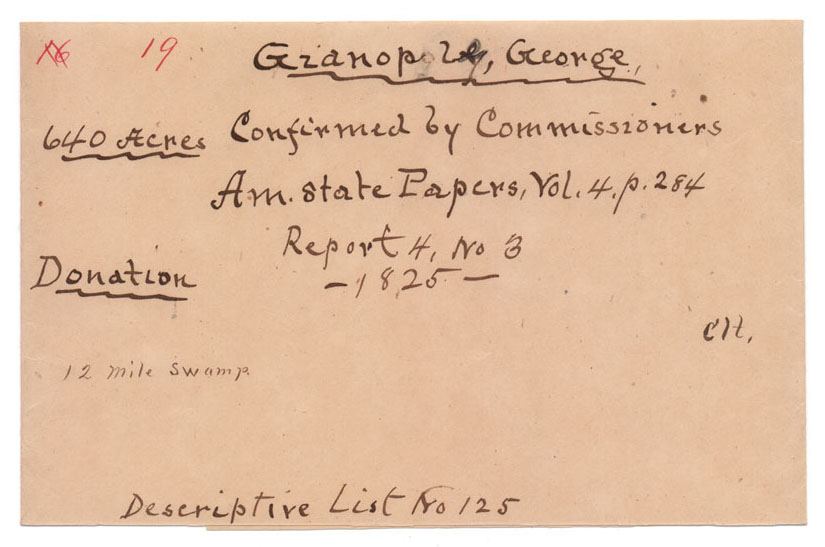 No 19
Gianopoly, George,
640 Acres Confirmed by Commissioners
Am. State Papers, Vol. 4. p. 284
Report 4, No 3
Donation
— 1825 —
CH.
12 mile swamp
Descriptive List No 125